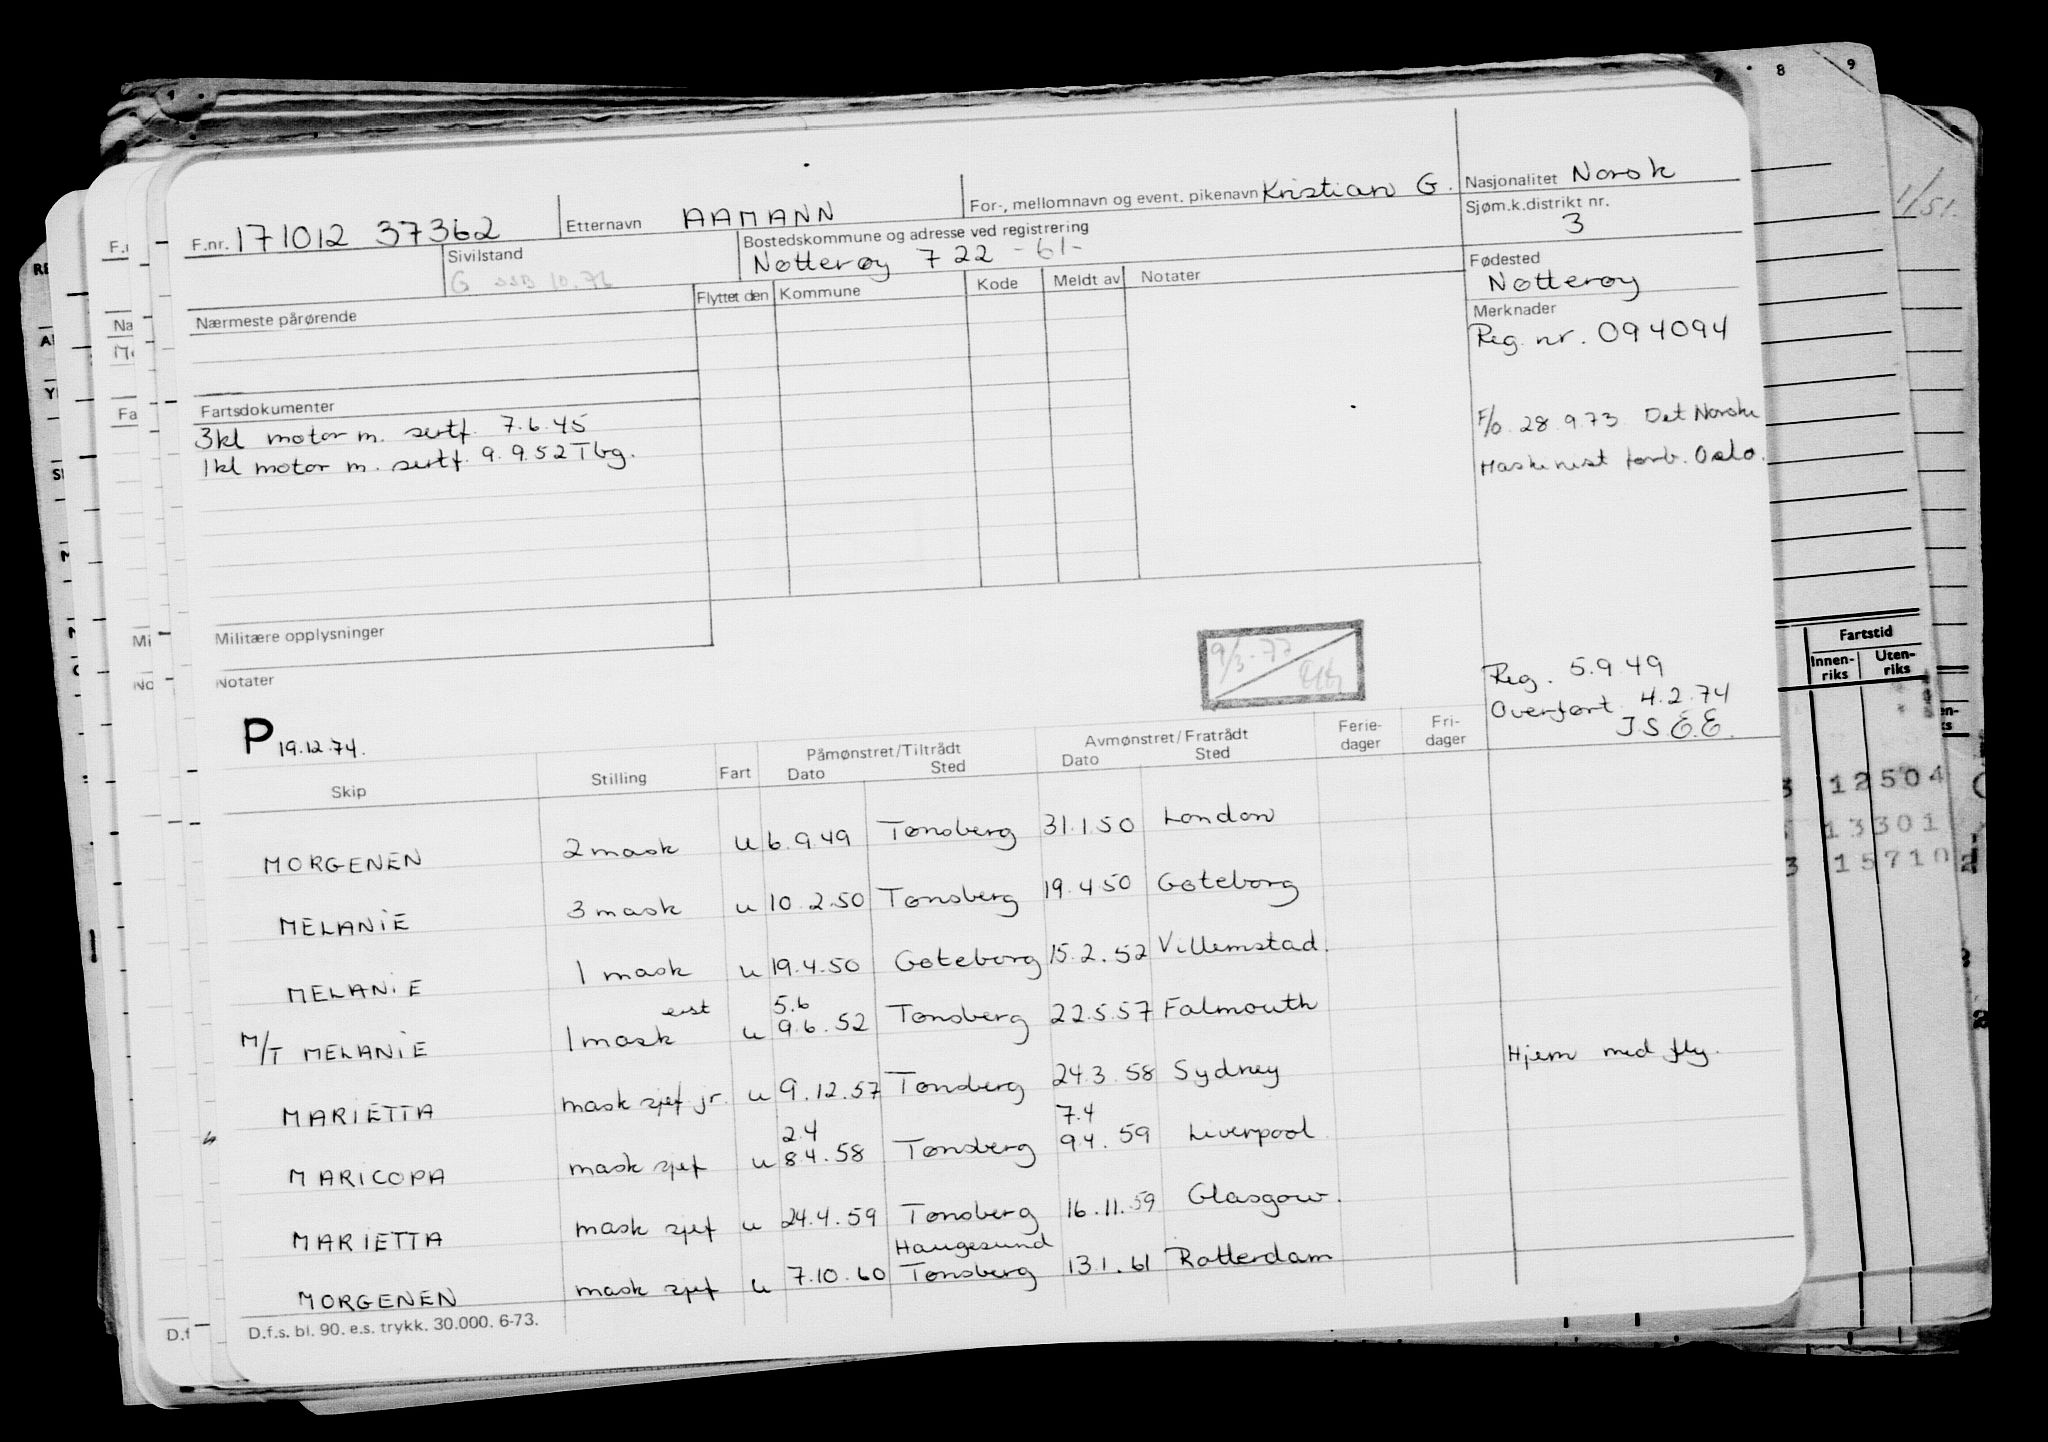 F.nr. 171012 37362 Etternavn AAMANN For-, mellomnavn og event. pikenavn Kristian G. Nasjonalitet Norsk
Sivilstand G SSB 10.76 Bostedskommune og adresse ved registrering Nøtterøy 722 -61- Sjøm.k.distrikt nr. 3
Nærmeste pårørende Flyttet den Kommune Kode Meldt av Notater Fødested
Nøtterøy
Merknader
Reg. nr. 094094
Fartsdokumenter
3kl motor m. sertf. 7.6.45
1kl motor m. sertf. 9.9.52 Tbg.
F/o. 28.9.73 Det Norske
Maskinist forb. Oslo.
Militære opplysninger
Notater
9/3-77
Reg. 5.9.49
Overført 4.2.74
P 19.12.74.
Skip Stilling Fart Påmønstret/Tiltrådt Dato Sted Avmønstret/Fratrådt Dato Sted Ferie-dager Fri-dager
MORGENEN 2 mask u 6.9.49 Tønsberg 31.1.50 London
MELANIE 3 mask u 10.2.50 Tønsberg 19.4.50 Gøteborg
MELANIE 1 mask u 19.4.50 Gøteborg 15.2.52 Villemstad.
5.6
M/T MELANIE 1 mask u 9.6.52 Tønsberg 22.5.57 Falmouth
MARIETTA mask sjef jr. u 9.12.57 Tønsberg 24.3.58 Sydney Hjem med fly.
2.4 7.4
MARICOPA mask sjef u 8.4.58 Tønsberg 9.4.59 Liverpool
MARIETTA mask sjef u 24.4.59 Tønsberg 16.11.59 Glasgow.
Haugesund
MORGENEN mask sjef u 7.10.60 Tønsberg 13.1.61 Rotterdam
D.f.s. bl. 90. e.s. trykk. 30.000. 6-73.
8 9
1/51.
Fartstid
Innen-riks Uten-riks
12504
13301
15710